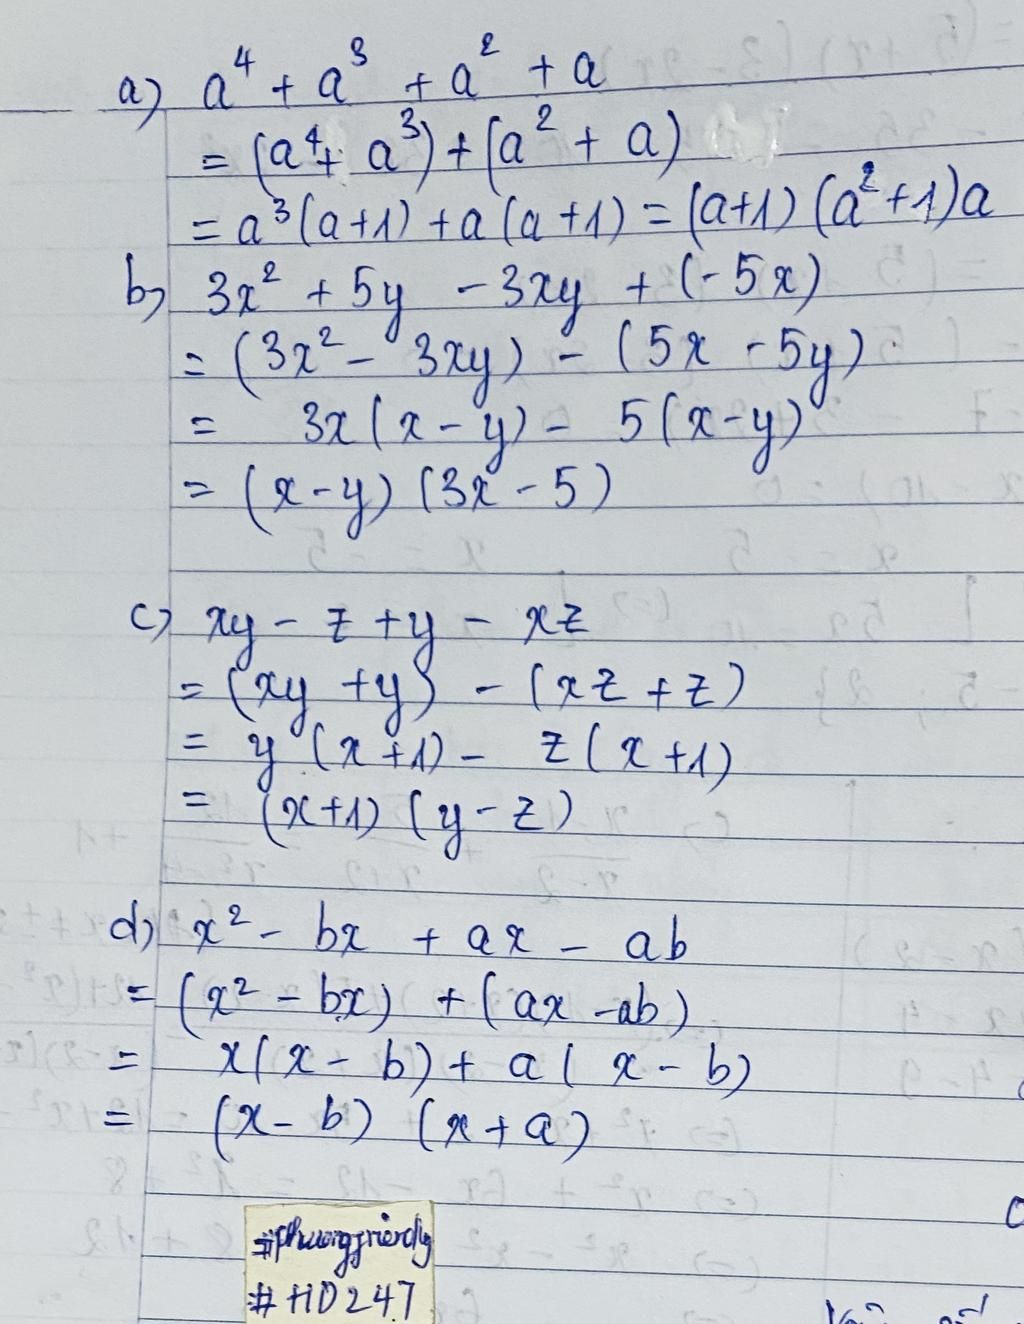 a) a⁴ + a³ + a² + a
= (a⁴ + a³) + (a² + a)
= a³(a+1) + a(a+1) = (a+1)(a²+1)a
b) 3x² + 5y - 3xy + (-5x)
= (3x² - 3xy) - (5x - 5y)
= 3x(x - y) - 5(x-y)
= (x-y)(3x-5)
c) xy - z + y - xz
= (xy + y) - (xz + z)
= y(x+1) - z(x+1)
= (x+1)(y-z)
d) x² - bx + ax - ab
= (x² - bx) + (ax - ab)
= x(x - b) + a(x - b)
= (x - b)(x + a)
#phuongfriendly
#HD247